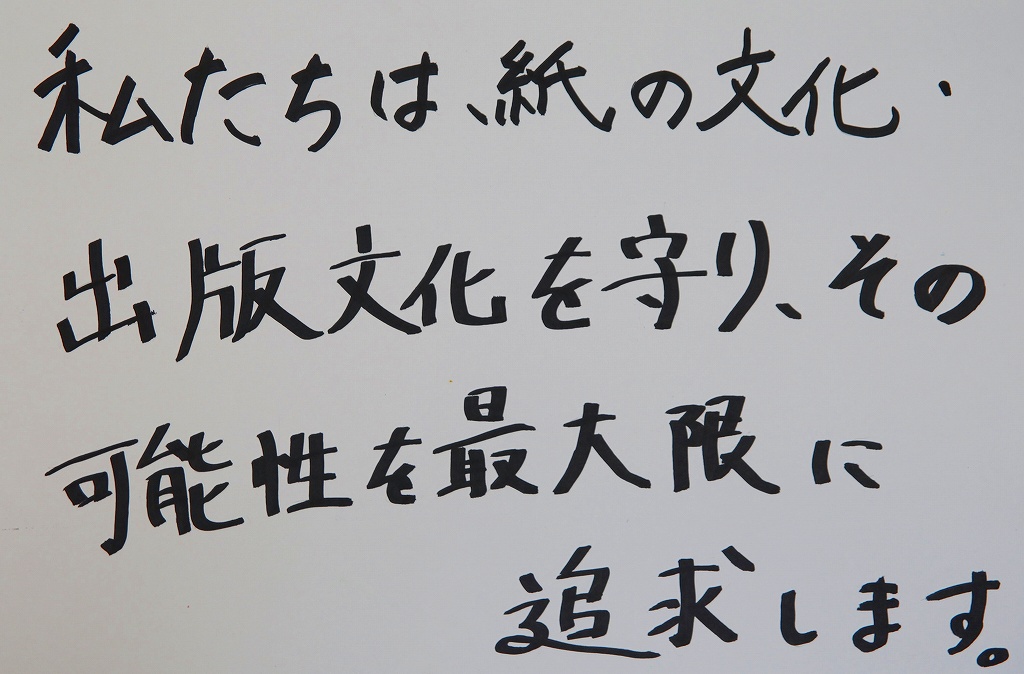 私たちは、紙の文化・
出版文化を守り、その
可能性を最大限に
追求します。